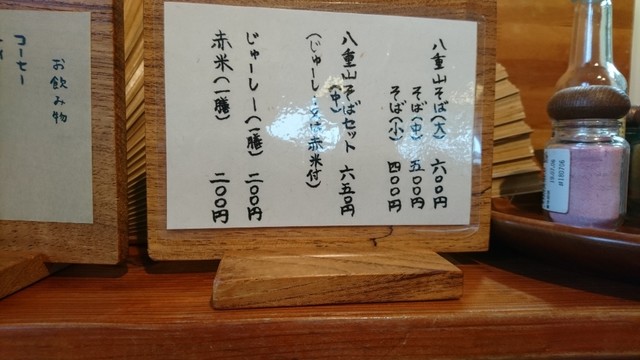 八重山そば(大) 六〇〇円
そば(中) 五〇〇円
そば(小) 四〇〇円
八重山そばセット 六五〇円
(中)
(じゅーしー又は赤米付)
じゅーしー(一膳) 二〇〇円
赤米(一膳) 二〇〇円
お飲み物
コーヒー